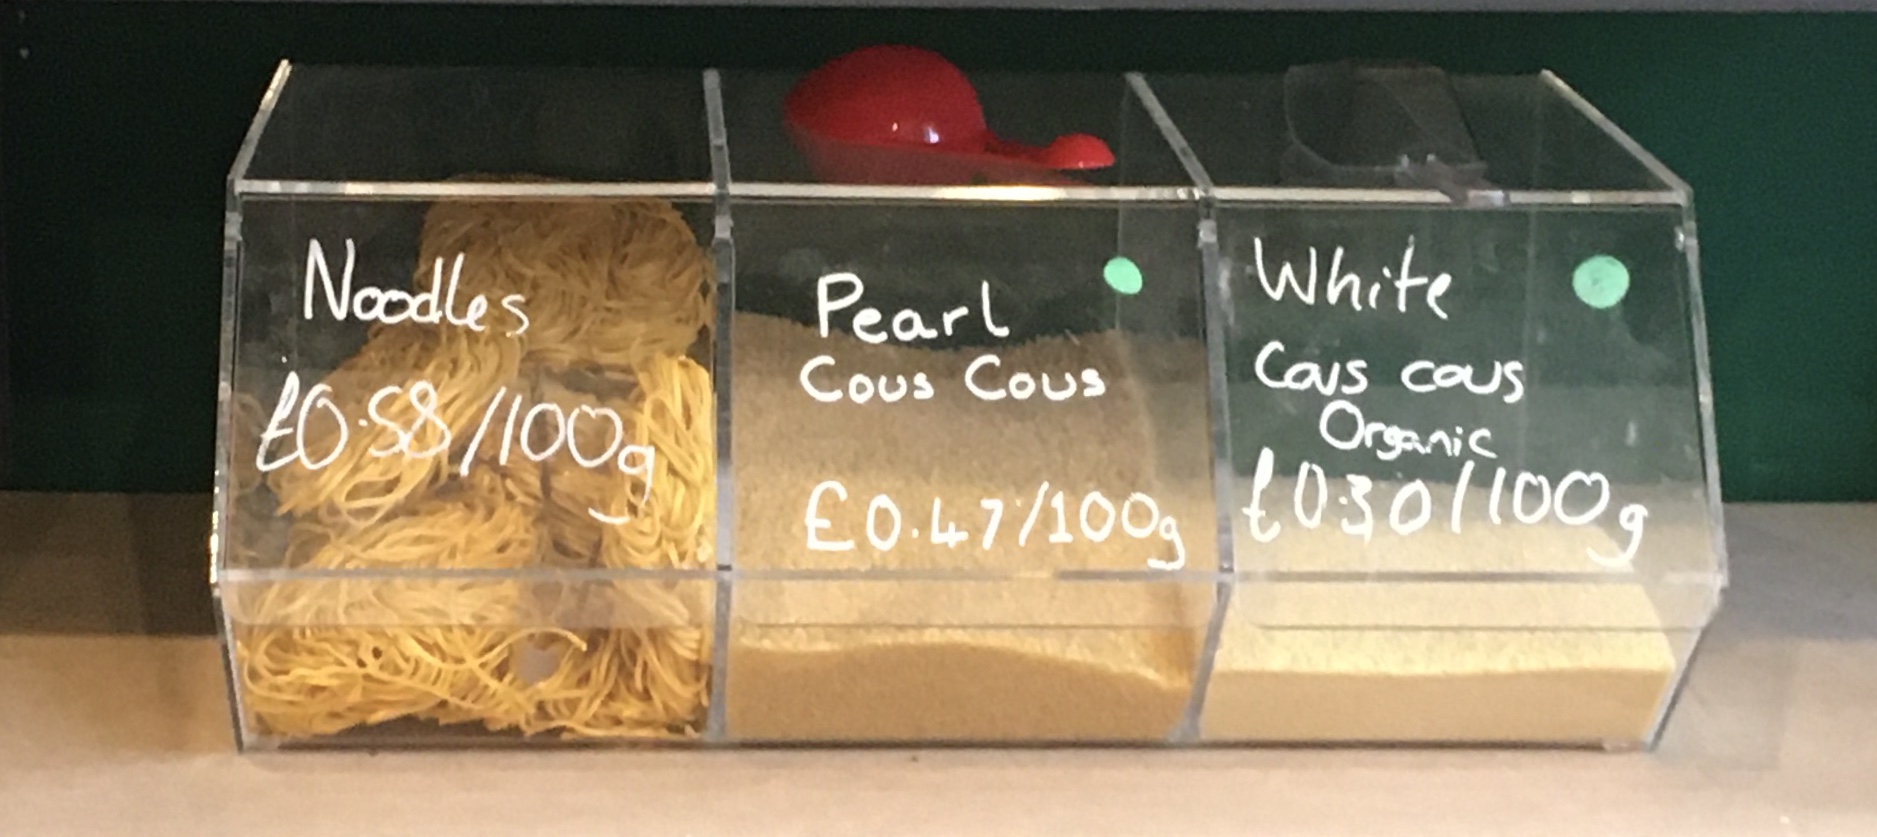 Noodles
£0.58/100g
Pearl
Cous Cous
£0.47/100g
White
Cous cous
Organic
£0.30/100g